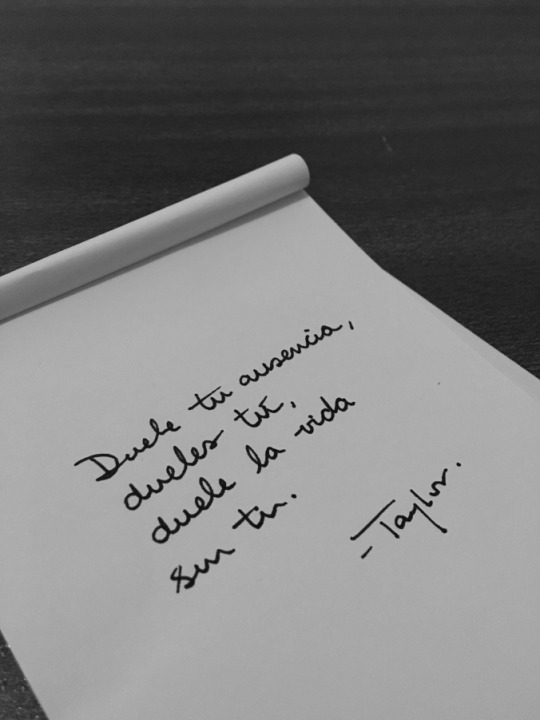 Duele tu ausencia,
dueles tú,
duele la vida
sin tu.
- Taylor.